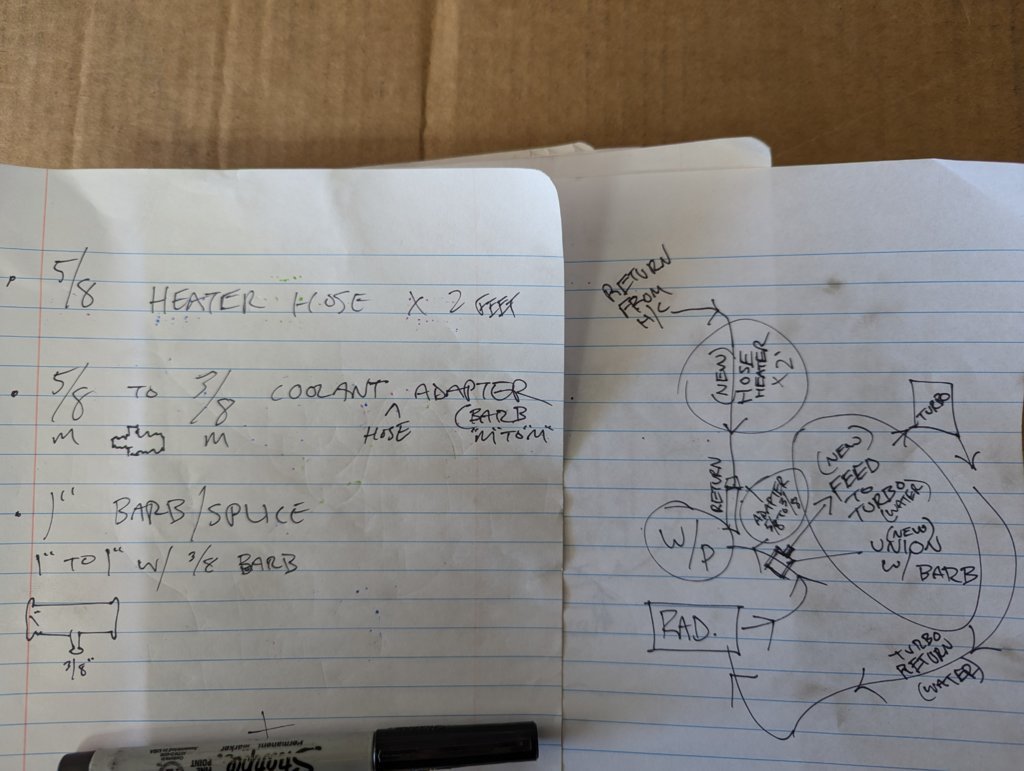 5/8 HEATER HOSE X 2 FEET
5/8 TO 3/8 COOLANT ADAPTER
M M
^ HOSE
(BARB
"M" TO "M"
1" BARB/SPLICE
1" TO 1" W/ 3/8 BARB
3/8"
PERMANENT
MARKER
Sharpie
POINT
RETURN
FROM
H/C
(NEW)
HOSE
HEATER
X 2'
RETURN
ADAPTER
W/P
RAD.
(NEW)
FEED
TO
TURBO
(WATER)
TURBO
(NEW)
UNION
W/ BARB
TURBO
RETURN
(WATER)